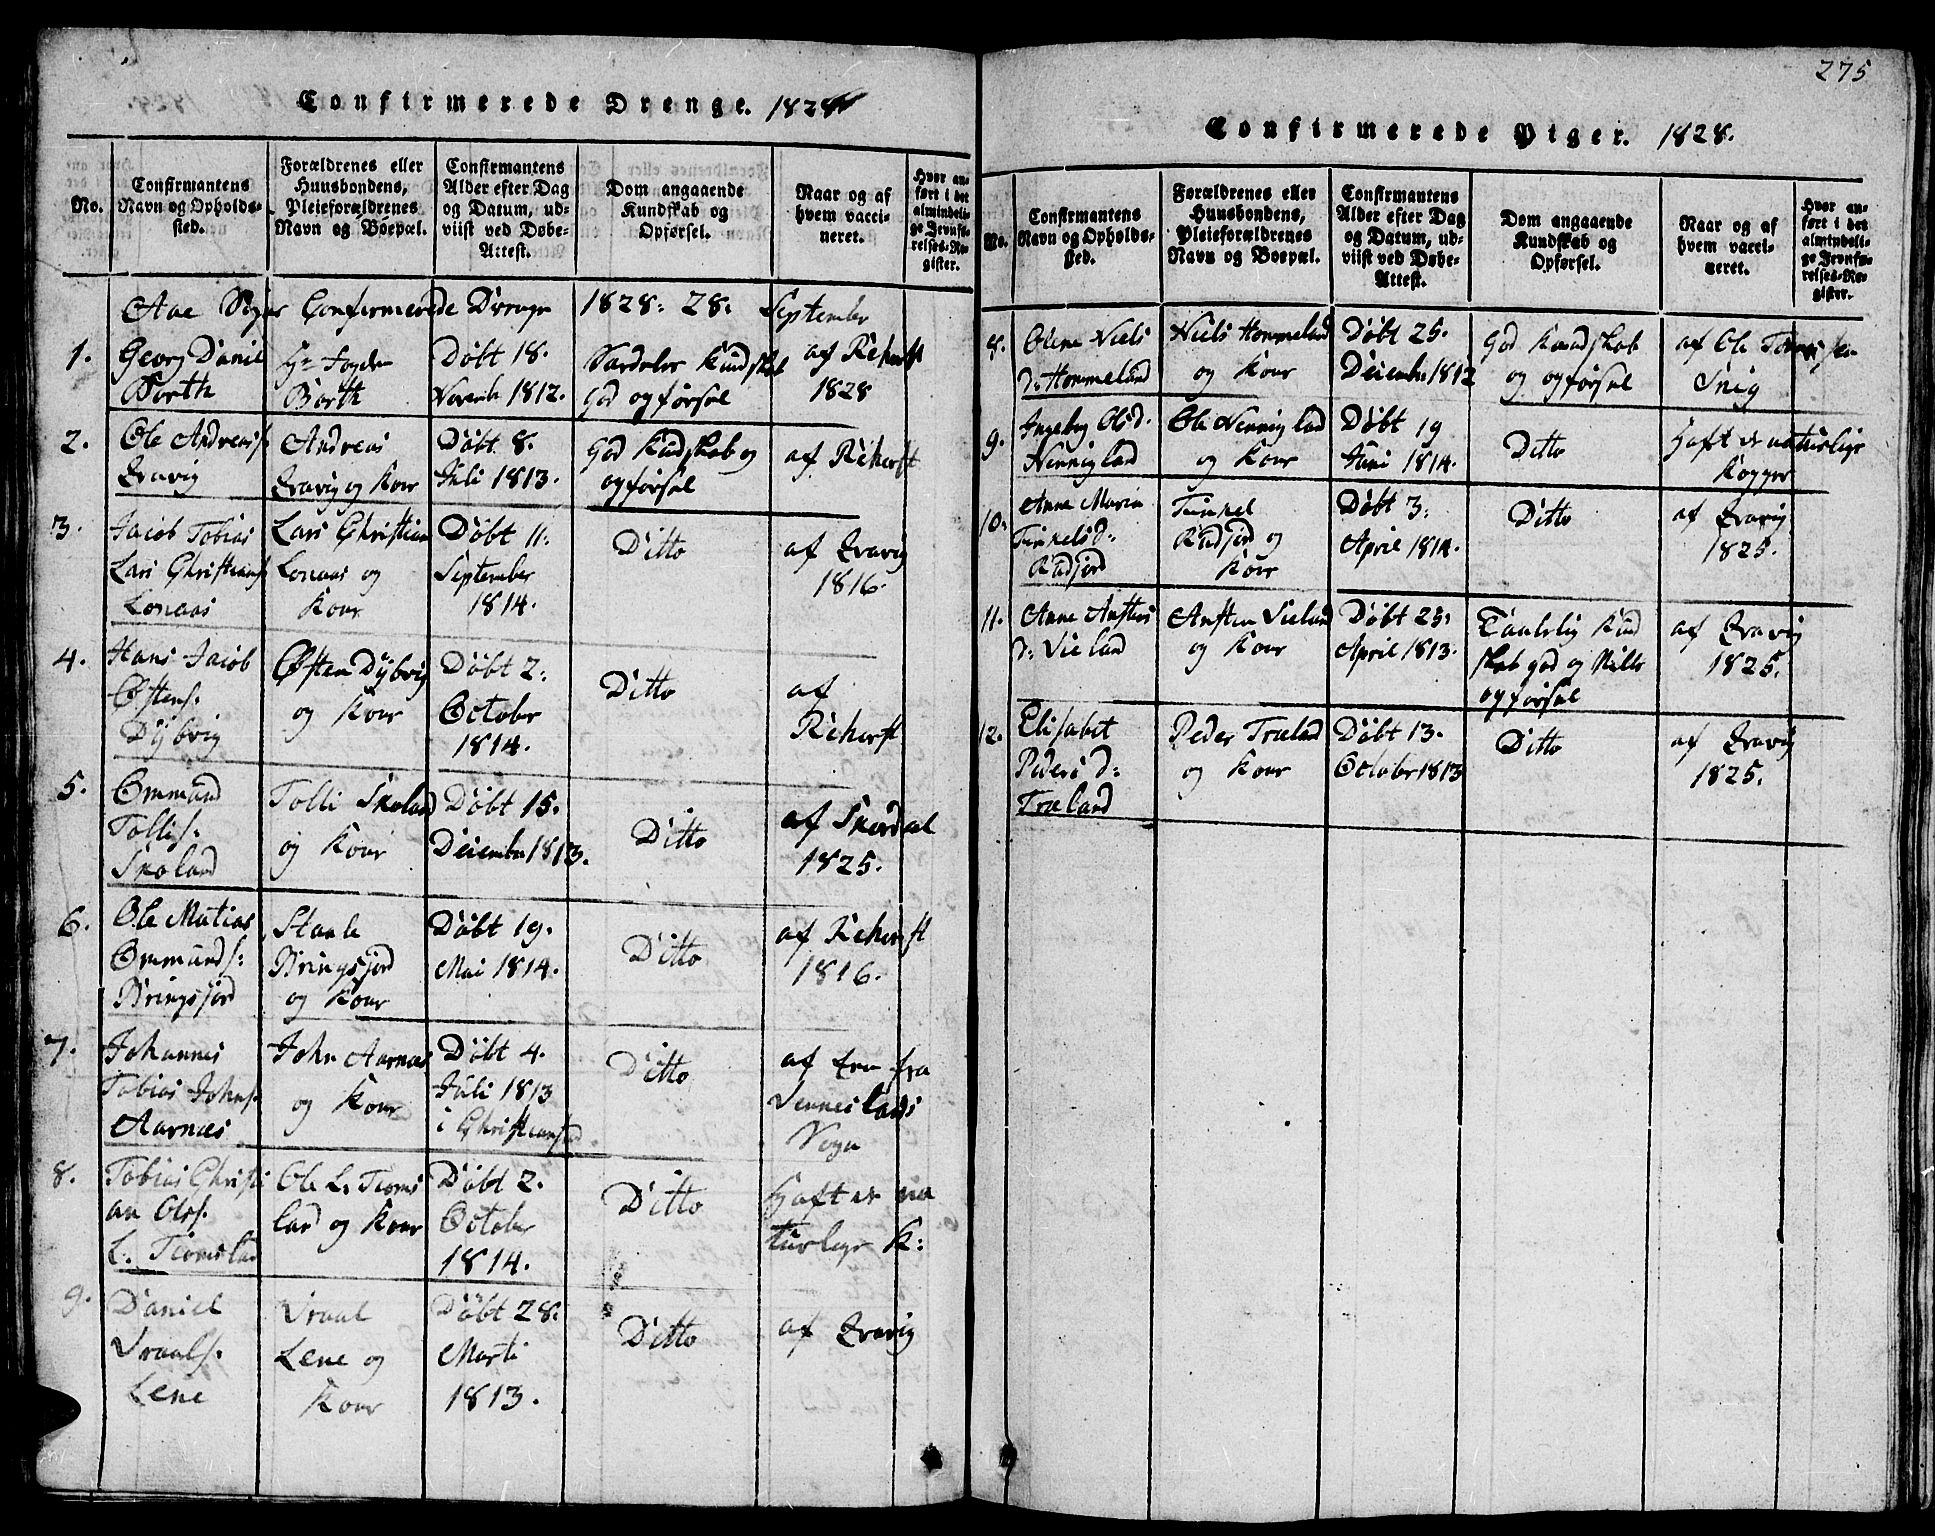 Confirmerede Drenge. 1828
No.
Confirmantens
Navn og Opholds-
sted.
Forældrenes eller
Huusbondens,
Pleieforældrenes
Navn og Boepæl.
Confirmantens
Alder efter Dag
og Datum, ud-
viist ved Døbe-
Attest.
Dom angaaende
Kundskab og
Opførsel.
Naar og af
hvem vacci-
neret.
Hvor an-
ført i det
almindeli-
ge Jevnfø-
relses-Re-
gister.
Aae Sogns Confirmerede Drenge 1828: 28. September
1.
Georg Daniel
Barth
Hr Fogden
Barth
Døbt 18.
Novemb 1812.
Særdeles Kundskab
God opførsel
af Richerst
1828
2.
Ole Andreas
Qvavig
Andreas
Qvavig og Kone
Døbt 8.
Juli 1813.
God Kundskab og
opførsel
af Richerst
3.
Jacob Tobias
Lars Christians
Lonaas
Lars Christian
Lonaas og
Kone
Døbt 11.
September
1814.
Ditto
af Qvavig
1816.
4.
Hans Jacob
Østens:
Dÿbvig
Østen Dÿbvig
og Kone
Døbt 2:
Octobr
1814.
Ditto
af
Richerst
5.
Ommund
Tollis:
Skoland
Tolli Skoland
og Kone
Døbt 15.
Decembr 1813.
Ditto
af Skordal
1825.
6.
Ole Matias
Ommunds:
Bringsjord
Staale
Bringsjord
og Kone
Døbt 19.
Mai 1814.
Ditto
af Richerst
1816.
7.
Johannes
Tobias Johns.
Aarnæs
John Aarnæs
og Kone
Døbt 4.
Juli 1813
i Christiansand
Ditto
af een fra
Venneslands
Sogn
8.
Tobias Christi
an Ols.
L. Tiomsland
Ole L. Tioms
land og Kone
Døbt 2.
October
1814.
Ditto
Haft de na
turlige K:
9.
Daniel
Vraals.
Lene
Vraal
Lene og
Kone
Døbt 28.
Marti
1813.
Ditto
af Qvavig
275
Confirmerede Piger. 1828.
No.
Confirmantens
Navn og Opholds-
sted.
Forældrenes eller
Huusbondens,
Pleieforældrenes
Navn og Boepæl.
Confirmantens
Alder efter Dag
og Datum, ud-
viist ved Døbe-
Attest.
Dom angaaende
Kundskab og
Opførsel.
Naar og af
hvem vacci-
neret.
Hvor an-
ført i det
almindeli-
ge Jevnfø-
relses-Re-
gister.
8.
Olene Niels
D: Hommeland
Niels Hommeland
og Kone
Døbt 25.
Decembr 1812
God Kundskab
og opførsel
af Ole
Snig
9.
Ingeborg Olsd.
Nennigland
Ole Nennigland
og Kone
Døbt 19
Juni 1814.
Ditto
Haft de naturlige
Kopper
10.
Anne Maria
Tinkelsd:
Rudjord
Tinkel
Rudjord og
Kone
Døbt 3.
April 1814.
Ditto
af Qvavig
1825.
11.
Anne Anstens
D: Vieland
Ansten Vieland
og Kone
Døbt 25.
April 1813.
Taalelig Kund
skab god og stille
opførsel
af Qvavig
1825.
12.
Elisabet
Peders D:
Træland
Peder Træland
og Kone
Døbt 13.
October 1813
Ditto
af Qvavig
1825.